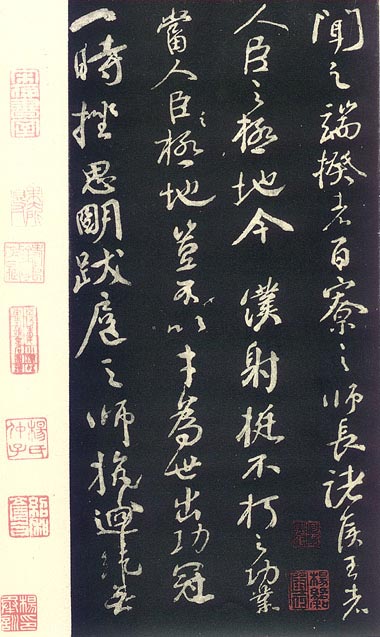 聞之端揆者百寮之師長諸侯王者
人臣之極地今 僕射挺不朽之功業
當人臣之極地豈不以才為世出功冠
一時挫思明跋扈之師抗迴紇無
楊氏仲子